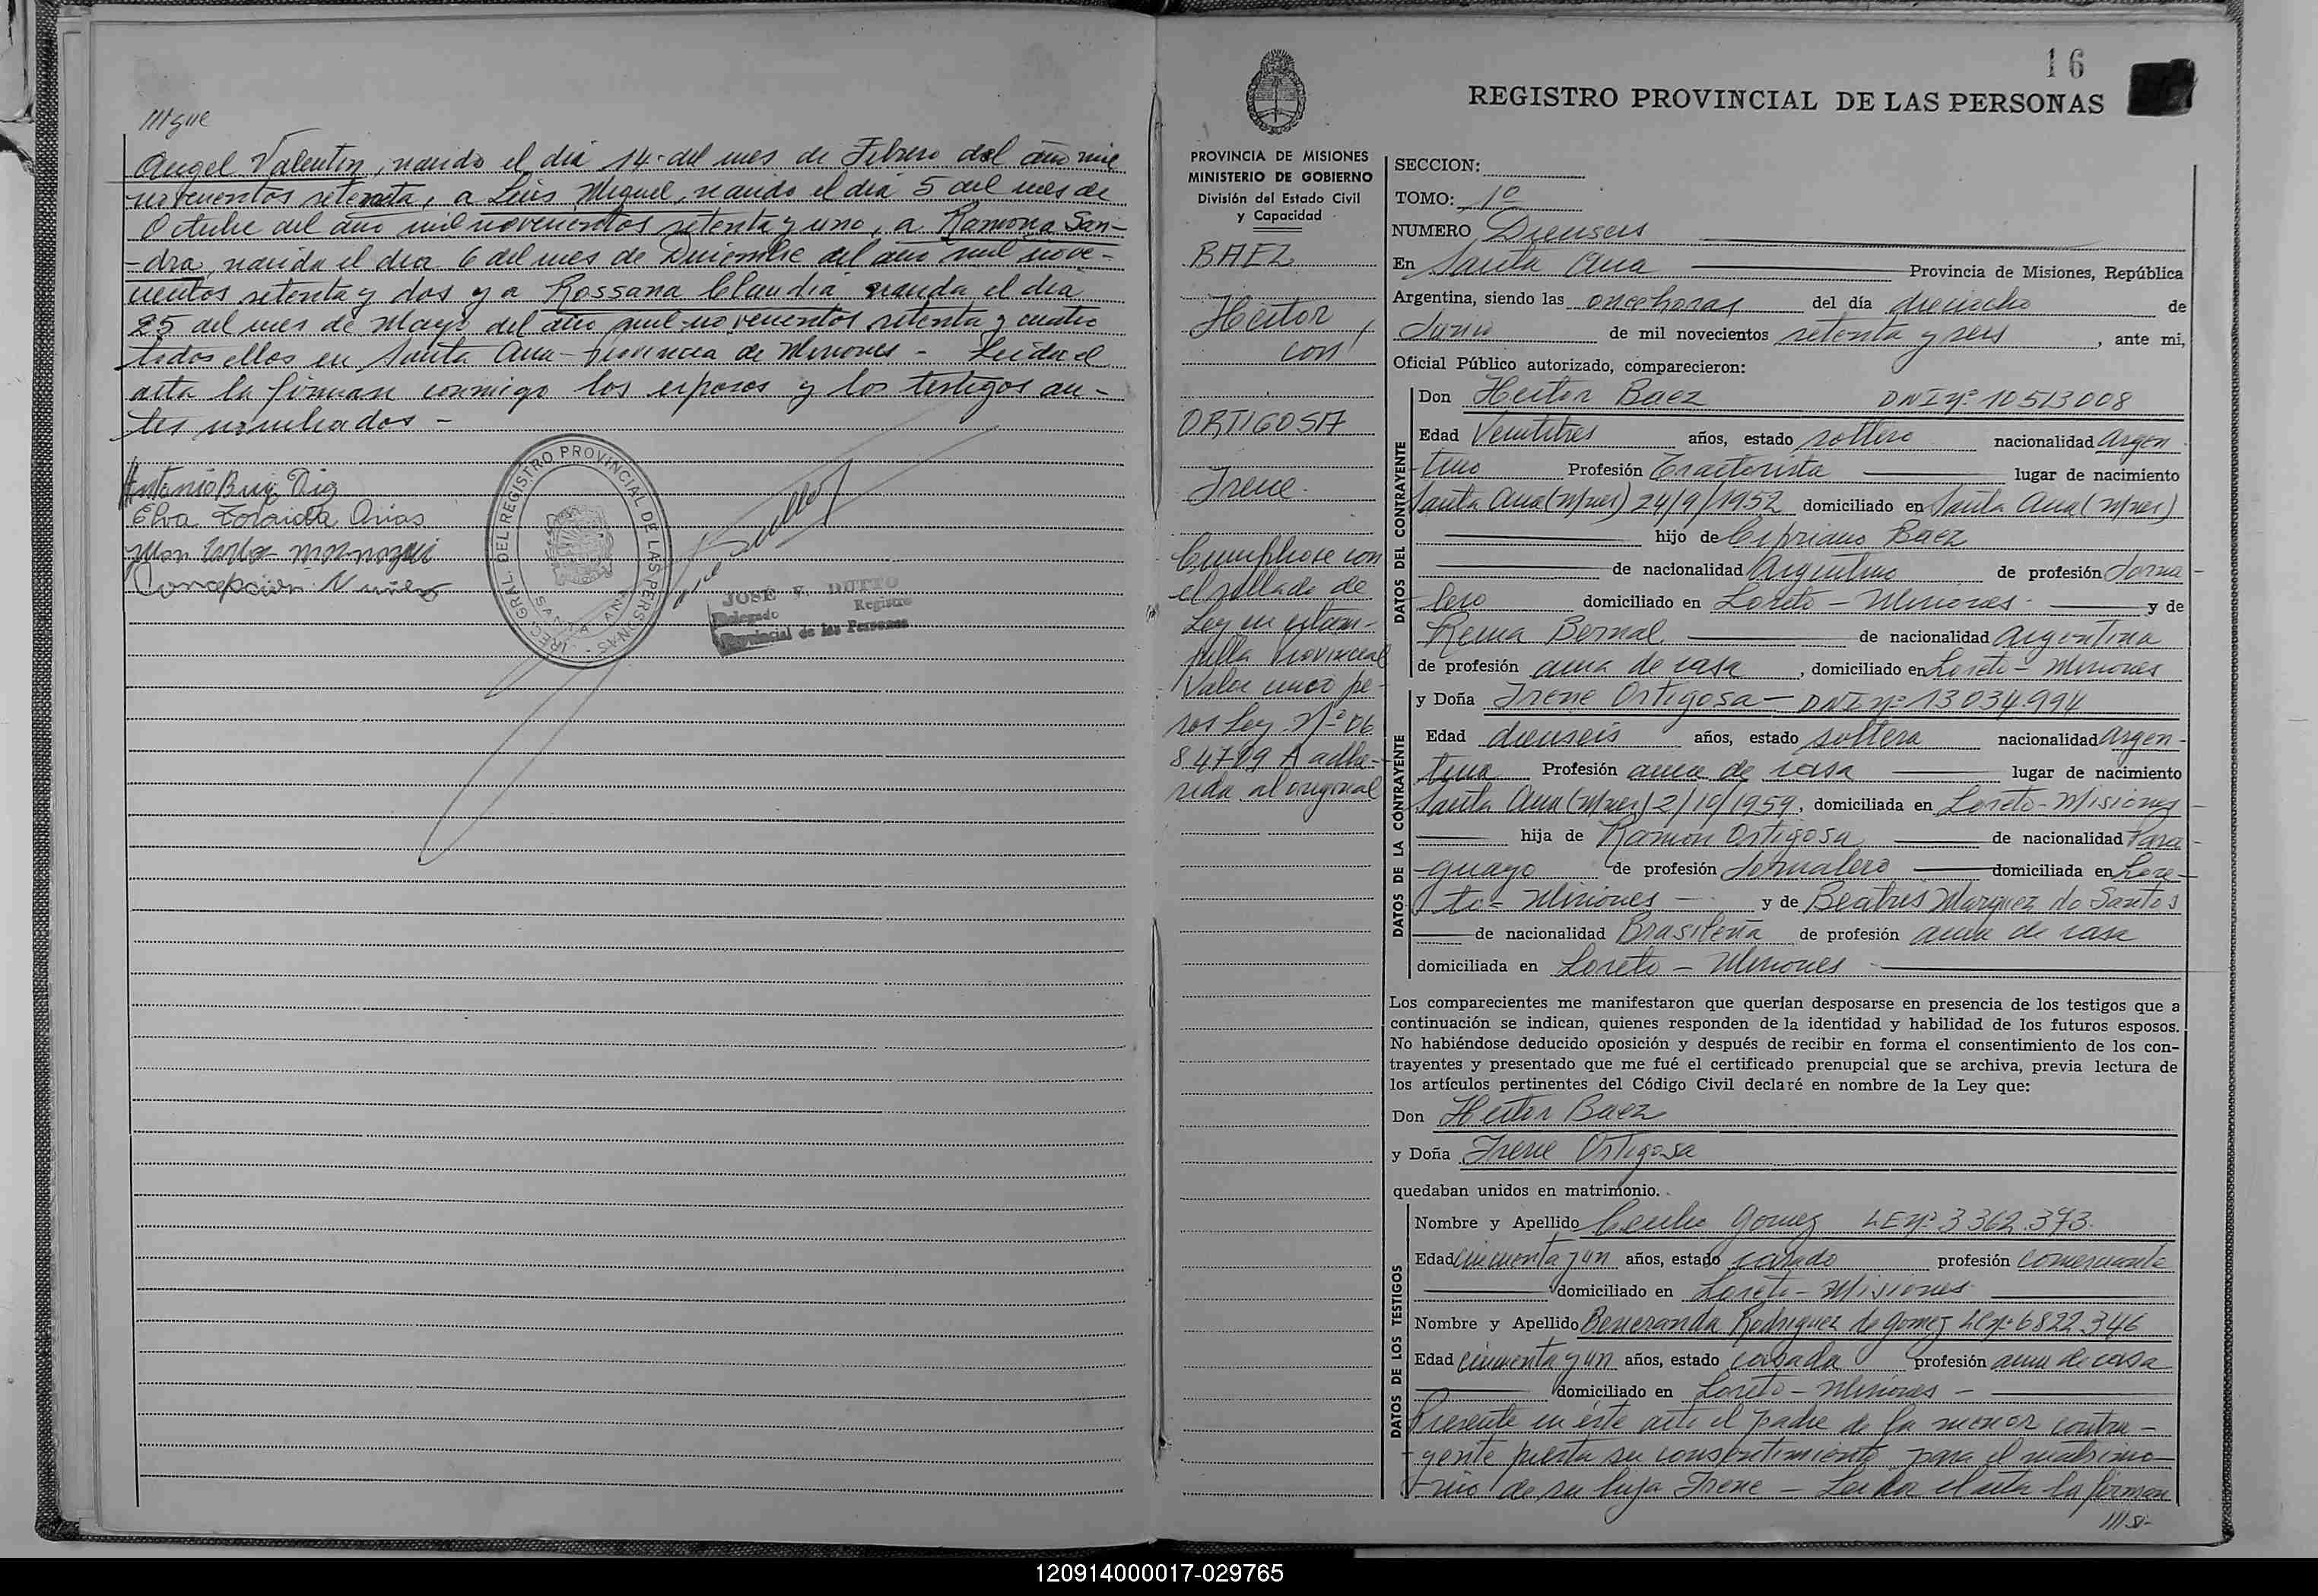 ///gue
Angel Valentin, nacido el dia 14 del mes de Febrero del año mil
novecientos setenta, a Luis Miguel, nacido el dia 5 del mes de
Octubre del año mil novecientos setenta y uno, a Ramona San-
-dra, nacida el dia 6 del mes de Diciembre del año mil nove-
cientos setenta y dos y a Rossana Claudia nacida el dia
25 del mes de Mayo del año mil novecientos setenta y cuatro
todos ellos en Santa Ana - provincia de Misiones - Leida el
acta la firman conmigo los esposos y los testigos an-
tes nombrados -
Antonio
Elva Zoraida Arias
Concepcion Nuñez
DIREC. GRAL. DEL REGISTRO PROVINCIAL DE LAS PERSONAS
SANTA ANA
JOSE V. DUTTO
Delegado Registro
Provincial de las Personas
16
REGISTRO PROVINCIAL DE LAS PERSONAS
PROVINCIA DE MISIONES
MINISTERIO DE GOBIERNO
División del Estado Civil
y Capacidad
BAEZ
Hector
con
ORTIGOSA
Irene.
Cumpliose con
el sellado de
Ley en estam-
pilla Provincial
Valor cinco pe-
sos Ley Nº 06
84789 A adhe-
rida al original
SECCION:
TOMO: 1º
NUMERO Dieciseis
En Santa Ana Provincia de Misiones, República
Argentina, siendo las once horas del día dieciocho de
Junio de mil novecientos setenta y seis, ante mi,
Oficial Público autorizado, comparecieron:
DATOS DEL CONTRAYENTE
Don Hector Baez DNI nº 10513008
Edad Veintitres años, estado soltero nacionalidad Argen
tino Profesión Tractorista lugar de nacimiento
Santa Ana (Mnes) 24/9/1952 domiciliado en Santa Ana (Mnes)
hijo de Cipriano Baez
de nacionalidad Argentino de profesión Jorna-
lero domiciliado en Loreto - Misiones - y de
Rema Bernal de nacionalidad argentina
de profesión ama de casa, domiciliado en Loreto - Misiones
DATOS DE LA CONTRAYENTE
y Doña Irene Ortigosa - DNI nº 13034994
Edad dieciseis años, estado soltera nacionalidad Argen-
tina Profesión ama de casa lugar de nacimiento
Santa Ana (Mnes) 2/10/1959, domiciliada en Loreto - Misiones
hija de Ramon Ortigosa de nacionalidad Para-
-guayo de profesión Jornalero domiciliada en Lore-
to - Misiones - y de Beatris Marquez do Santos
de nacionalidad Brasileña de profesión ama de casa
domiciliada en Loreto - Misiones
Los comparecientes me manifestaron que querían desposarse en presencia de los testigos que a
continuación se indican, quienes responden de la identidad y habilidad de los futuros esposos.
No habiéndose deducido oposición y después de recibir en forma el consentimiento de los con-
trayentes y presentado que me fué el certificado prenupcial que se archiva, previa lectura de
los artículos pertinentes del Código Civil declaré en nombre de la Ley que:
Don Hector Baez
y Doña Irene Ortigosa
quedaban unidos en matrimonio.
DATOS DE LOS TESTIGOS
Nombre y Apellido Cecilio Gomez LE nº 3362.373.
Edad cincuenta y un años, estado casado profesión comerciante
domiciliado en Loreto - Misiones
Nombre y Apellido Beneranda Rodriguez de Gomez LC nº 6822.346
Edad cincuenta y un años, estado casada profesión ama de casa
domiciliado en Loreto - Misiones -
Presente en éste acto el padre de la menor contra-
-yente presta su consentimiento para el matrimo-
-nio de su hija Irene - Leida el acta la firman
///si-
120914000017-029765